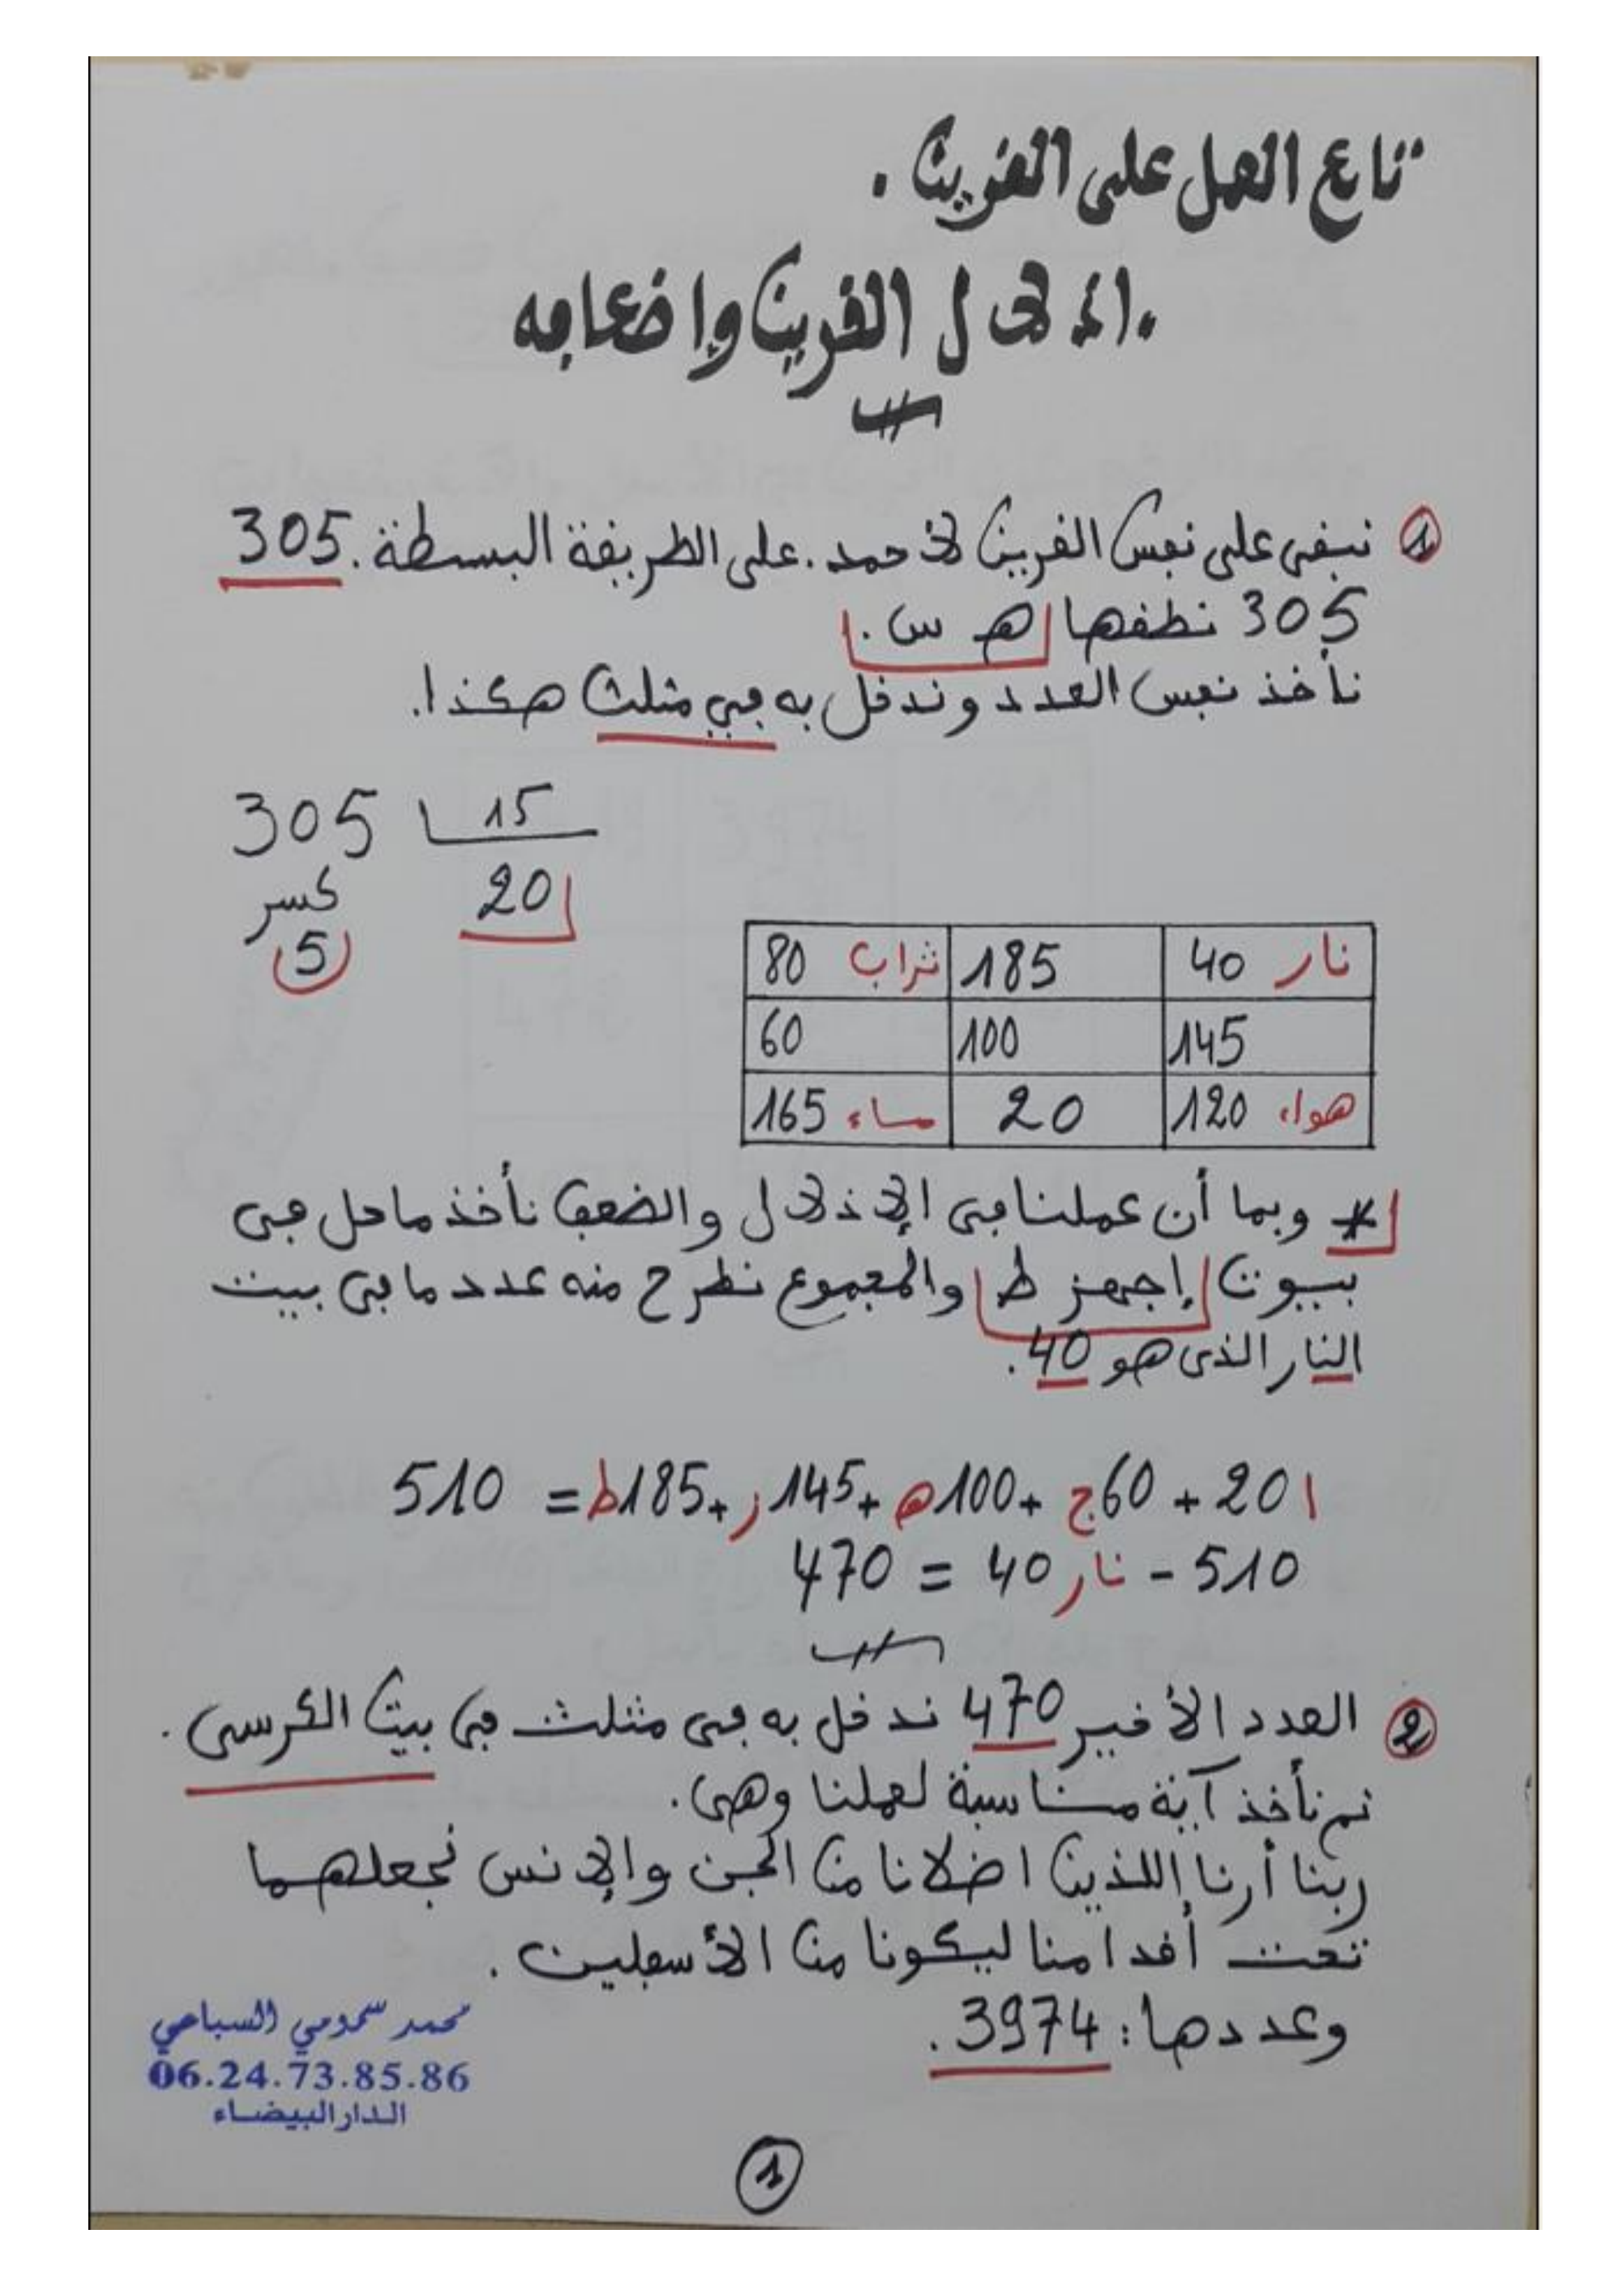 تابع العمل على القرين.
.إذلال القرين وإضعافه
① نبقى على نفس القرين لأحمد. على الطريقة البسطة. 305
305 نطقها هـ س.
نأخذ نفس العدد وندخل به في مثلث هكذا.
305 15
كسر 20
5
نار 40 185 تراب 80
145 100 60
هواء 120 20 ماء 165
* وبما أن عملنا في الإذلال والضعف نأخذ ما حل في
بيوت إجهز ط والمجموع نطرح منه عدد ما في بيت
النار الذي هو 40.
ا20 + 60ج + 100هـ + 145ز + 185ط = 510
510 - نار 40 = 470
② العدد الأخير 470 ندخل به في مثلث في بيت الكرسي.
ثم نأخذ آية مناسبة لعملنا وهي.
ربنا أرنا اللذين اضلانا من الجن والإنس نجعلهما
تحت أقدامنا ليكونا من الأسفلين.
وعددها: 3974.
محمد سمومي السباعي
06.24.73.85.86
الدار البيضاء
①